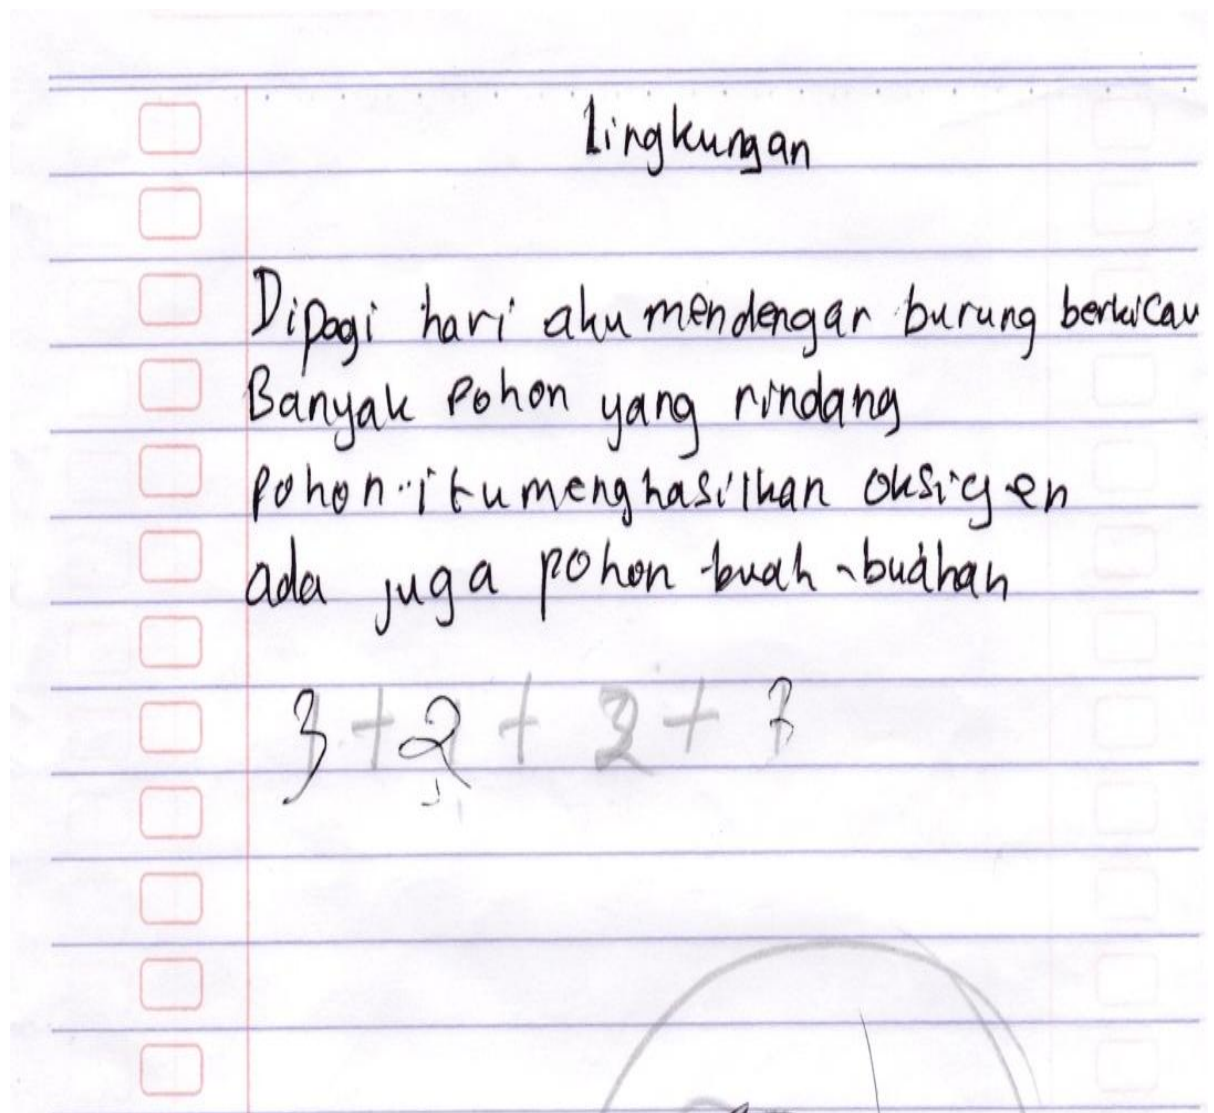 lingkungan
Dipagi hari aku mendengar burung berkicau
Banyak pohon yang rindang
pohon itu menghasilkan oksigen
ada juga pohon buah-buahan
3+2+2+3